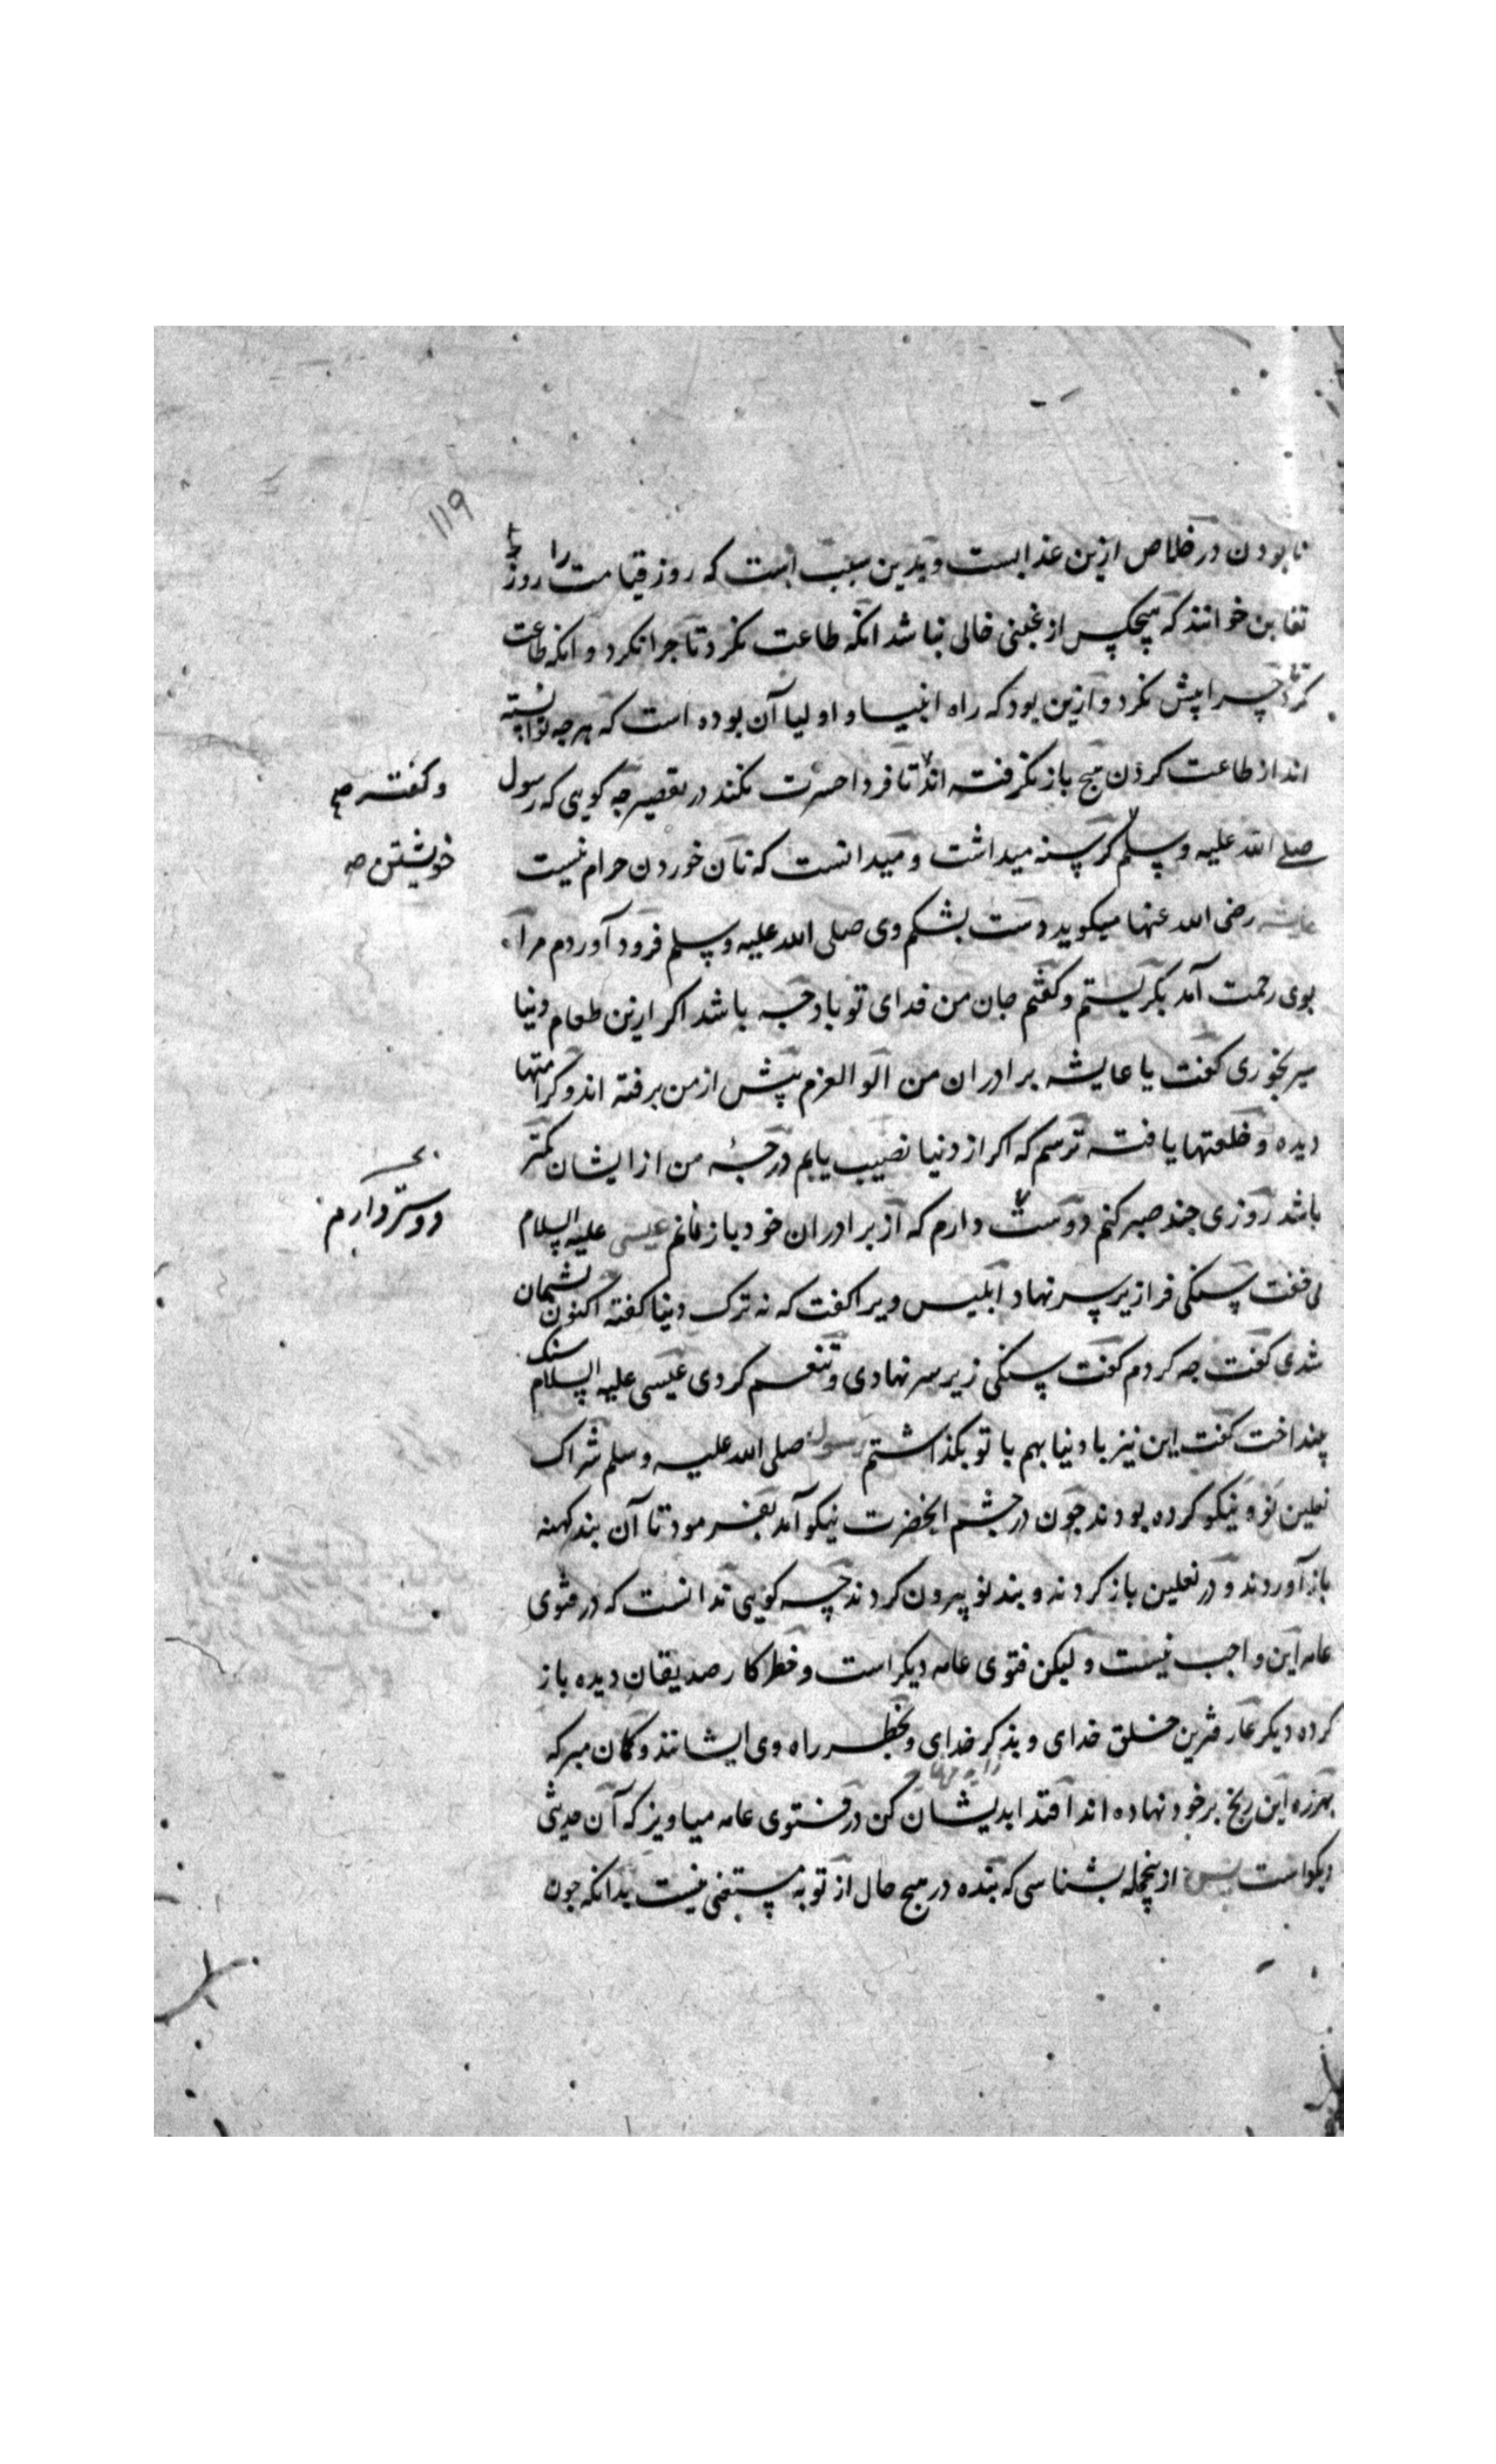 ۱۱۹
نابودن در خلاص ازین عذابست و بدین سبب است که روز قیامت را روز
تغابن خوانند که هیچکس از غبنی خالی نباشد انکه طاعت نکرد تا چرا نکرد و انکه طاعت
کرد چرا بیش نکرد و ازین بود که راه انبیا و اولیا آن بوده است که هرچه توانسته
اند از طاعت کردن هیچ باز نگرفته اند تا فردا حسرت نکند در تقصیر چه کویی که رسول
و کفته صح
صلے الله علیه و سلم کرسنه میداشت و میدانست که نان خوردن حرام نیست
خویشتن صح
عایشه رضی الله عنها میکوید دست بشکم وی صلی الله علیه و سلم فرود آوردم مرا
بوی رحمت آمد بکریستم و کفتم جان من فدای تو باد چه باشد اکر ازین طعام دنیا
سیر بخوری کفت یا عایشه برادران من الو العزم پیش از من برفته اند و کرامتها
دیده و خلعتها یافته ترسم که اکر از دنیا نصیب یابم درجهٔ من از ایشان کمتر
باشد روزی چند صبر کنم دوست دارم که از برادران خود باز مانم عیسی علیه السلام
دوستر دارم
می خفت سنکی فرا زیر سر نهاد ابلیس ویرا کفت که نه ترک دنیا کفته اکنون پشیمان
شدی کفت چه کردم کفت سنکی زیر سر نهادی و تنعم کردی عیسی علیه السلام سنک
بینداخت کفت این نیز با دنیا بهم با تو بکذاشتم رسول صلی الله علیه وسلم شراک
نعلین نو و نیکو کرده بودند چون در چشم انحضرت نیکو آمد بفرمود تا آن بند کهنه
باز آوردند و در نعلین باز کردند و بند نو بیرون کردند چه کویی ندانست که در فتوی
عامه این واجب نیست و لیکن فتوی عامه دیکر است و خطر کار صدیقان دیده باز
کرده دیکر عارفترین خلق خدای و بذکر خدای و بخطر راه وی ایشانند و کمان مبر که
بهرزه این رنج بر خود نهاده اند اقتدا بدیشان کن در فتوی عامه میاویز که آن حدیثی
دیکر است پس ازینجمله بشناسی که بنده در هیچ حال از توبه مستغنی نیست بدانکه چون